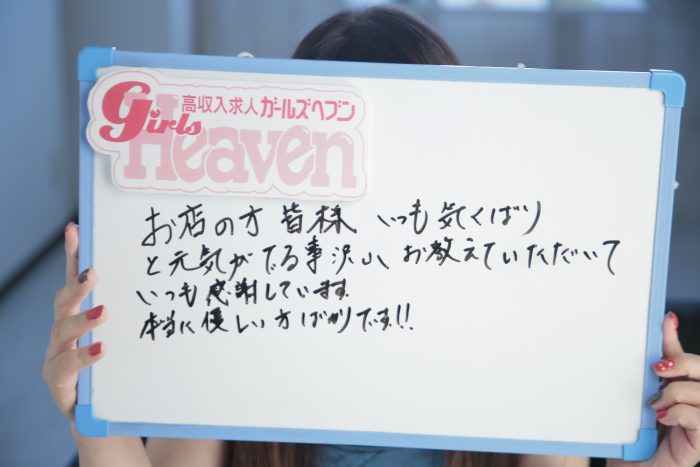 高収入求人ガールズヘブン
Girls
Heaven
お店の方 皆様 いつも気くばり
と元気がでる事沢山、お教えていただいて
いつも感謝しています。
本当に優しい方ばかりです!!